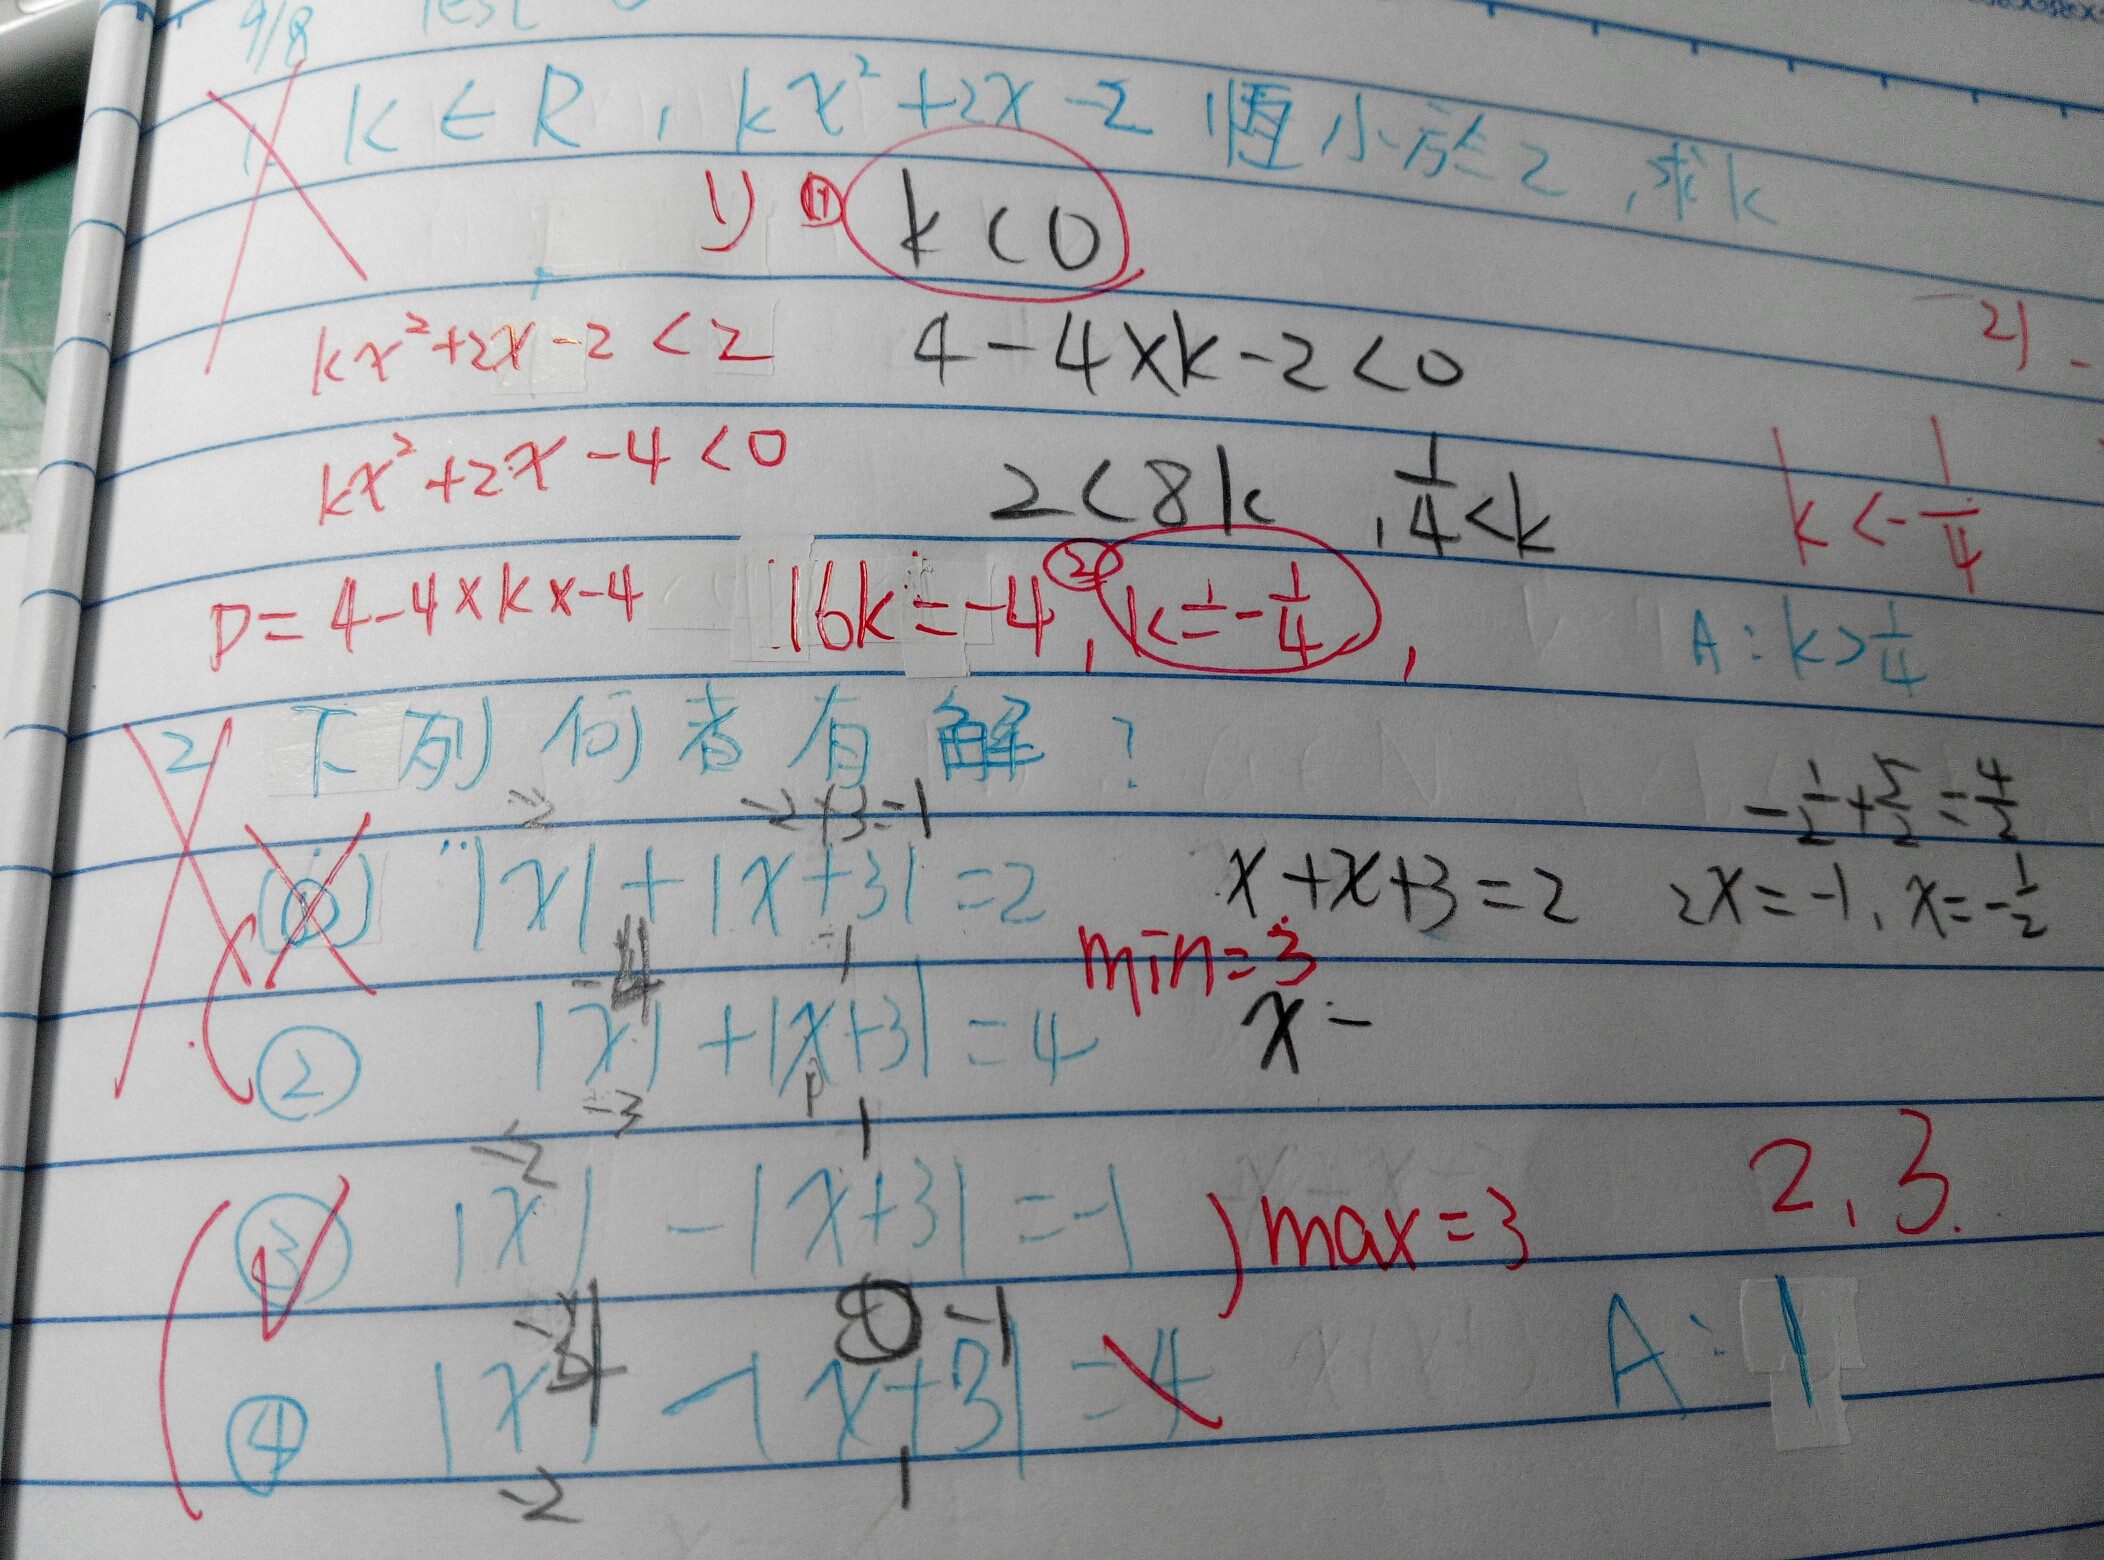 9/8 Test
1. k∈R, kx²+2x-2 恆小於2, 求k
1) ① k<0
kx²+2x-2<2 4-4×k-2<0 2) -
kx²+2x-4<0 2<8k , 1/4<k k<-1/4
D=4-4×k×-4 16k=-4, ② k=-1/4, A:k>1/4
2. 下列何者有解?
-2 -2+3=1 -1/2+5/2=4/2
(1) |x|+|x+3|=2 x+x+3=2 2x=-1, x=-1/2
-4 -1 min=3
② |x|+|x+3|=4 x=
-3
-2 1
③ |x|-|x+3|=-1 max=3 2,3.
-1
④ |x|-|x+3|=4 A:1
-2 1